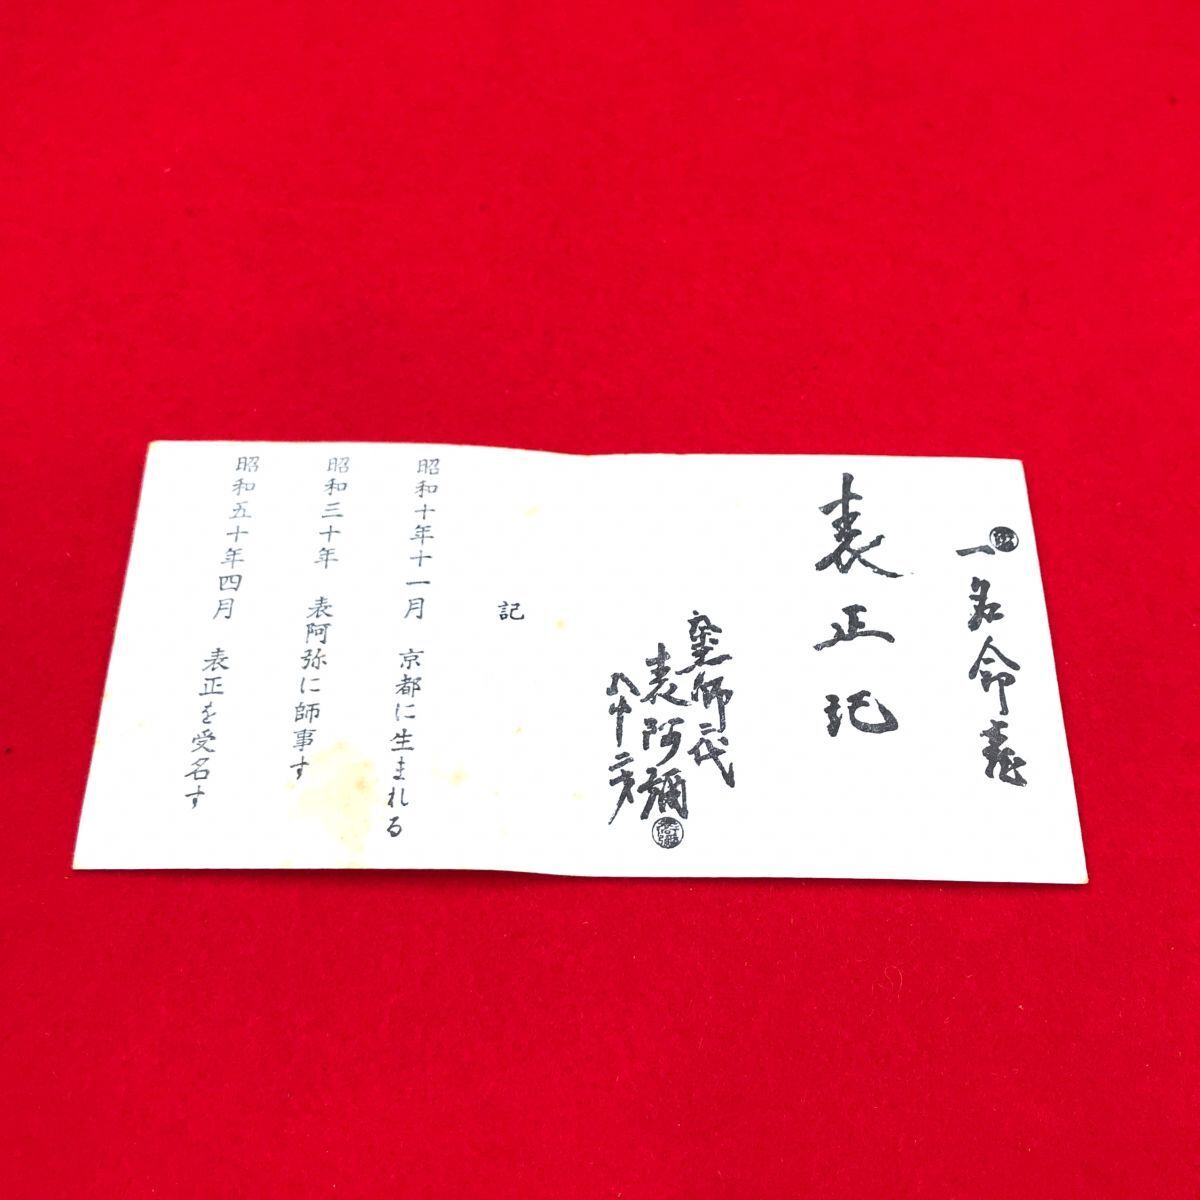 一名命表
表正記
塗師二代
表阿彌
八十二才
記
昭和十年十一月 京都に生まれる
昭和三十年 表阿弥に師事す
昭和五十年四月 表正を受名す